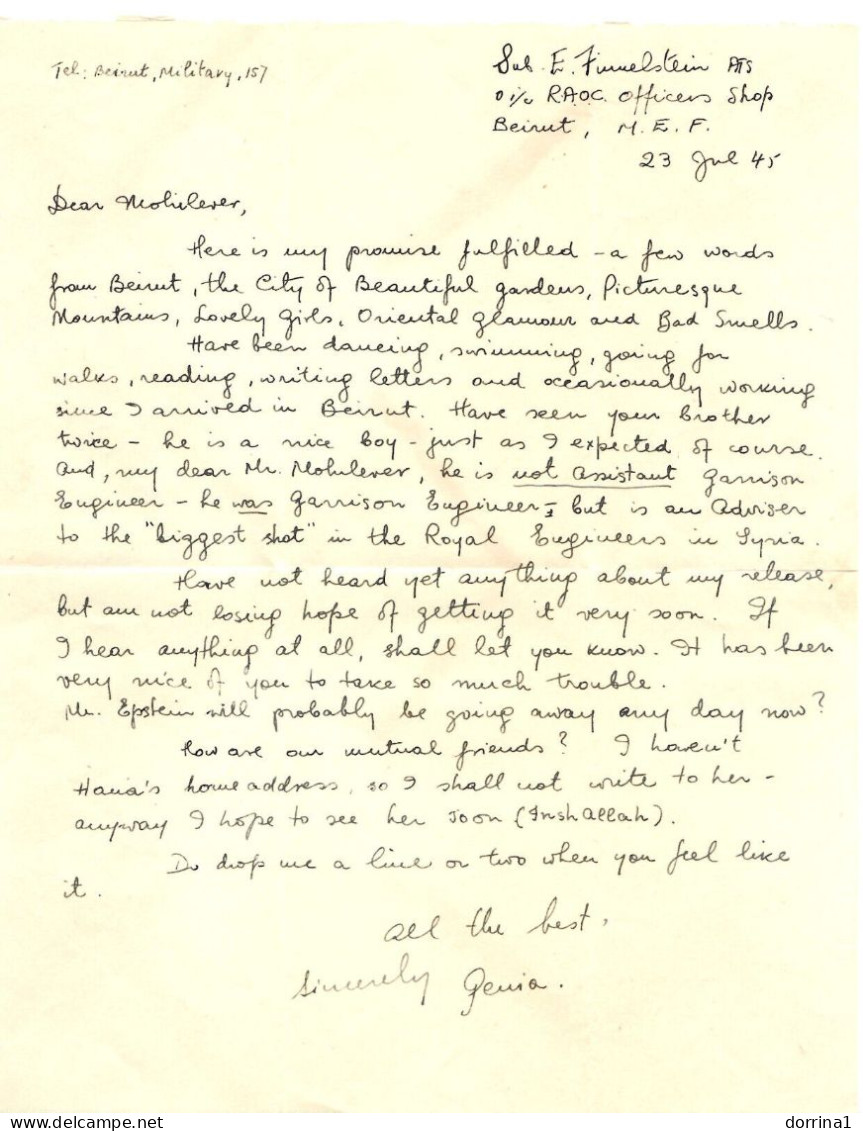 Tel: Beirut, Military, 157
Sub. E. Finnelstein ATS
o i/c R.A.O.C. Officers Shop
Beirut, M.E.F.
23 Jul 45
Dear Mohilever,
Here is my promise fulfilled – a few words
from Beirut, the City of Beautiful gardens, Picturesque
Mountains, Lovely Girls, Oriental Glamour and Bad Smells.
Have been dancing, swimming, going for
walks, reading, writing letters and occasionally working
since I arrived in Beirut. Have seen your brother
twice – he is a nice boy – just as I expected of course.
And, my dear Mr. Mohilever, he is not Assistant Garrison
Engineer – he was Garrison Engineer I but is an Adviser
to the "biggest shot" in the Royal Engineers in Syria.
Have not heard yet anything about my release,
but am not losing hope of getting it very soon. If
I hear anything at all, shall let you know. It has been
very nice of you to take so much trouble.
Mr. Epstein will probably be going away any day now?
How are our mutual friends? I haven't
Hana's home address, so I shall not write to her –
anyway I hope to see her soon (Insh Allah).
Do drop me a line or two when you feel like
it.
All the best,
Sincerely Genia.
dorrina1